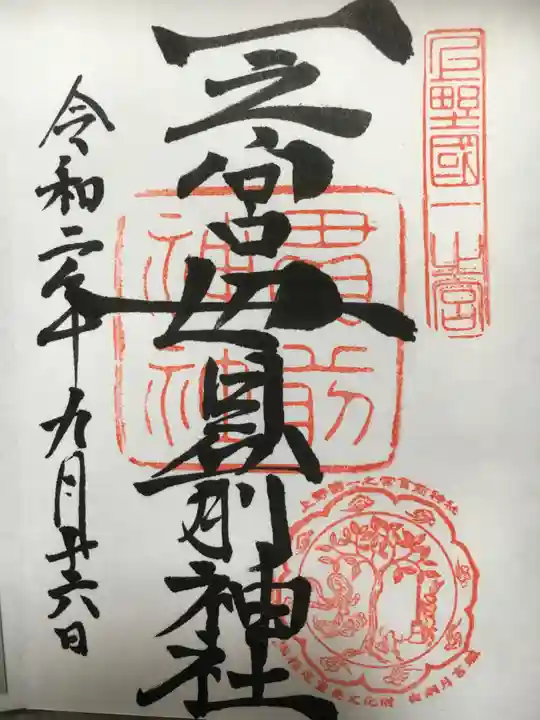 上野國一之宮
一之宮貫前神社
貫前
神社
令和二年九月廿六日
上野國一之宮貫前神社